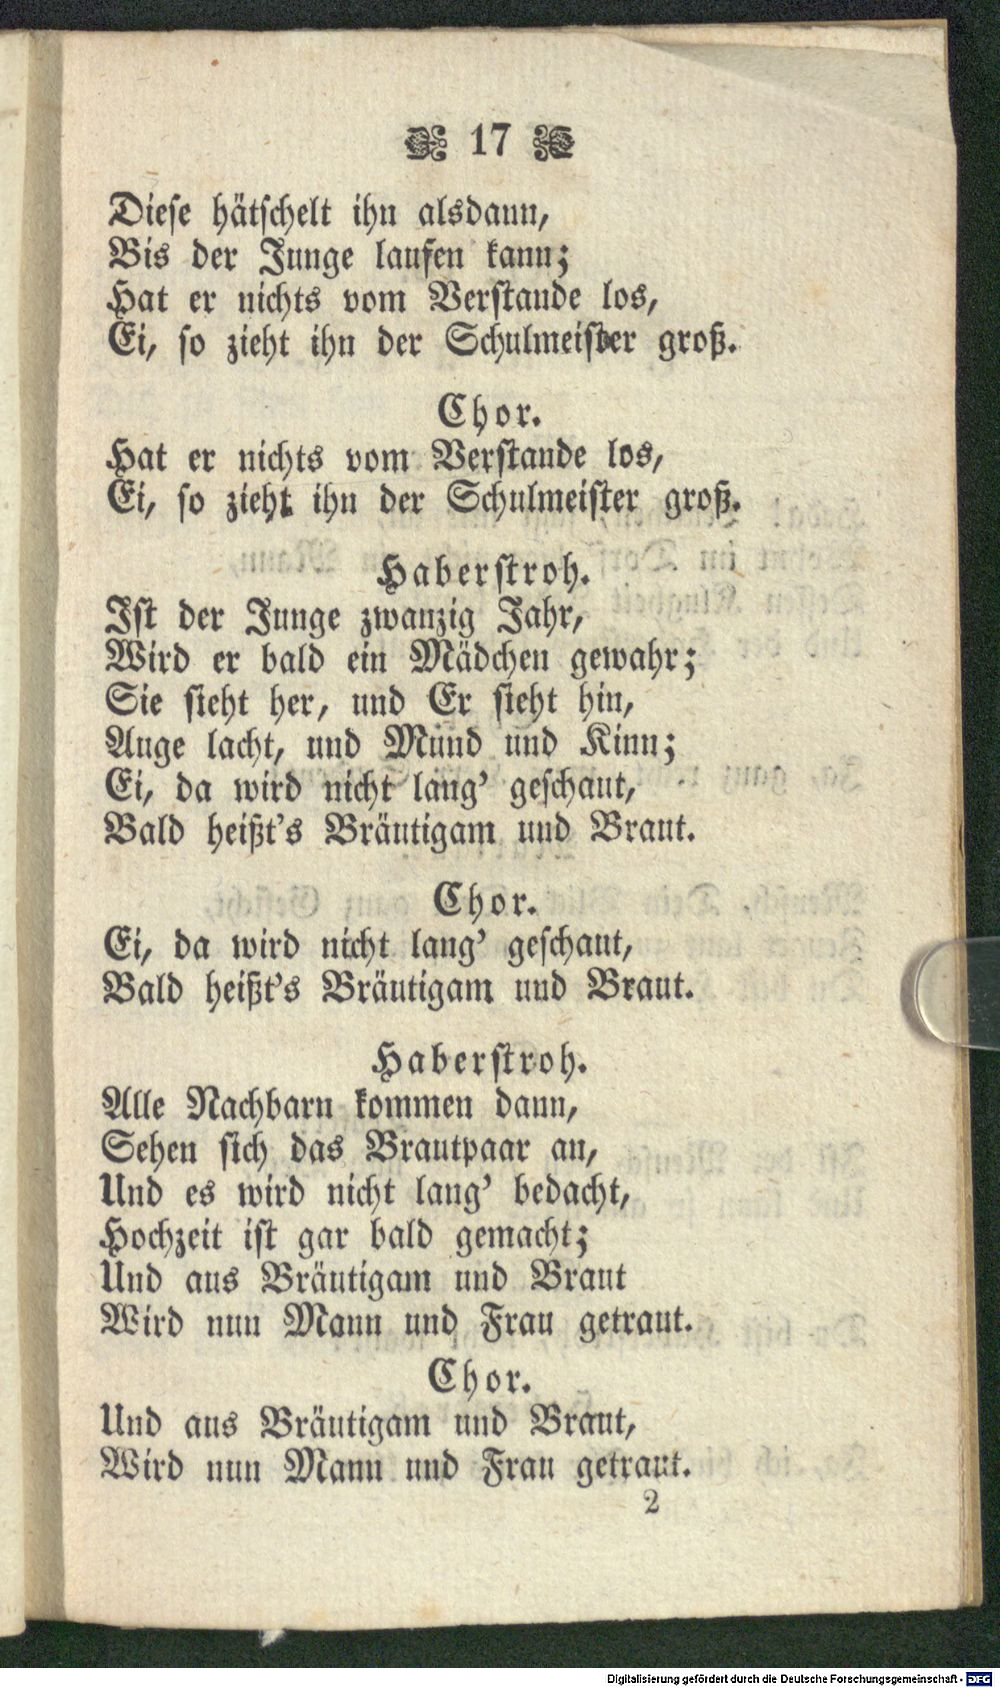 17
Diese hätschelt ihn alsdann,
Bis der Junge laufen kann;
Hat er nichts vom Verstande los,
Ei, so zieht ihn der Schulmeister groß.
Chor.
Hat er nichts vom Verstande los,
Ei, so zieht ihn der Schulmeister groß.
Haberstroh.
Ist der Junge zwanzig Jahr,
Wird er bald ein Mädchen gewahr;
Sie sieht her, und Er sieht hin,
Auge lacht, und Mund und Kinn;
Ei, da wird nicht lang' geschaut,
Bald heißt's Bräutigam und Braut.
Chor.
Ei, da wird nicht lang' geschaut,
Bald heißt's Bräutigam und Braut.
Haberstroh.
Alle Nachbarn kommen dann,
Sehen sich das Brautpaar an,
Und es wird nicht lang' bedacht,
Hochzeit ist gar bald gemacht;
Und aus Bräutigam und Braut
Wird nun Mann und Frau getraut.
Chor.
Und aus Bräutigam und Braut,
Wird nun Mann und Frau getraut.
2
Digitalisierung gefördert durch die Deutsche Forschungsgemeinschaft - DFG